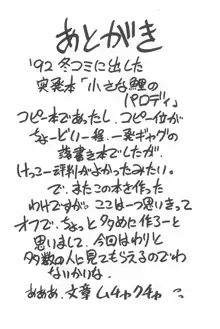 あとがき
'92 冬コミに出した
突発本「小さな鯉の
パロディ」
コピー本であったし、コピー位が
ちょーどいー程、一発ギャグの
落書き本でしたが、
けっこー評判がよかったみたい。
で、またこの本を作った
わけですが、ここは一つ思いきって
オフで、ちょっと多めに作ろーと
思いまして、今回はわりと
多数の人に見てもらえるのでわ
ないかいな。
あああ、文章ムチャクチャ